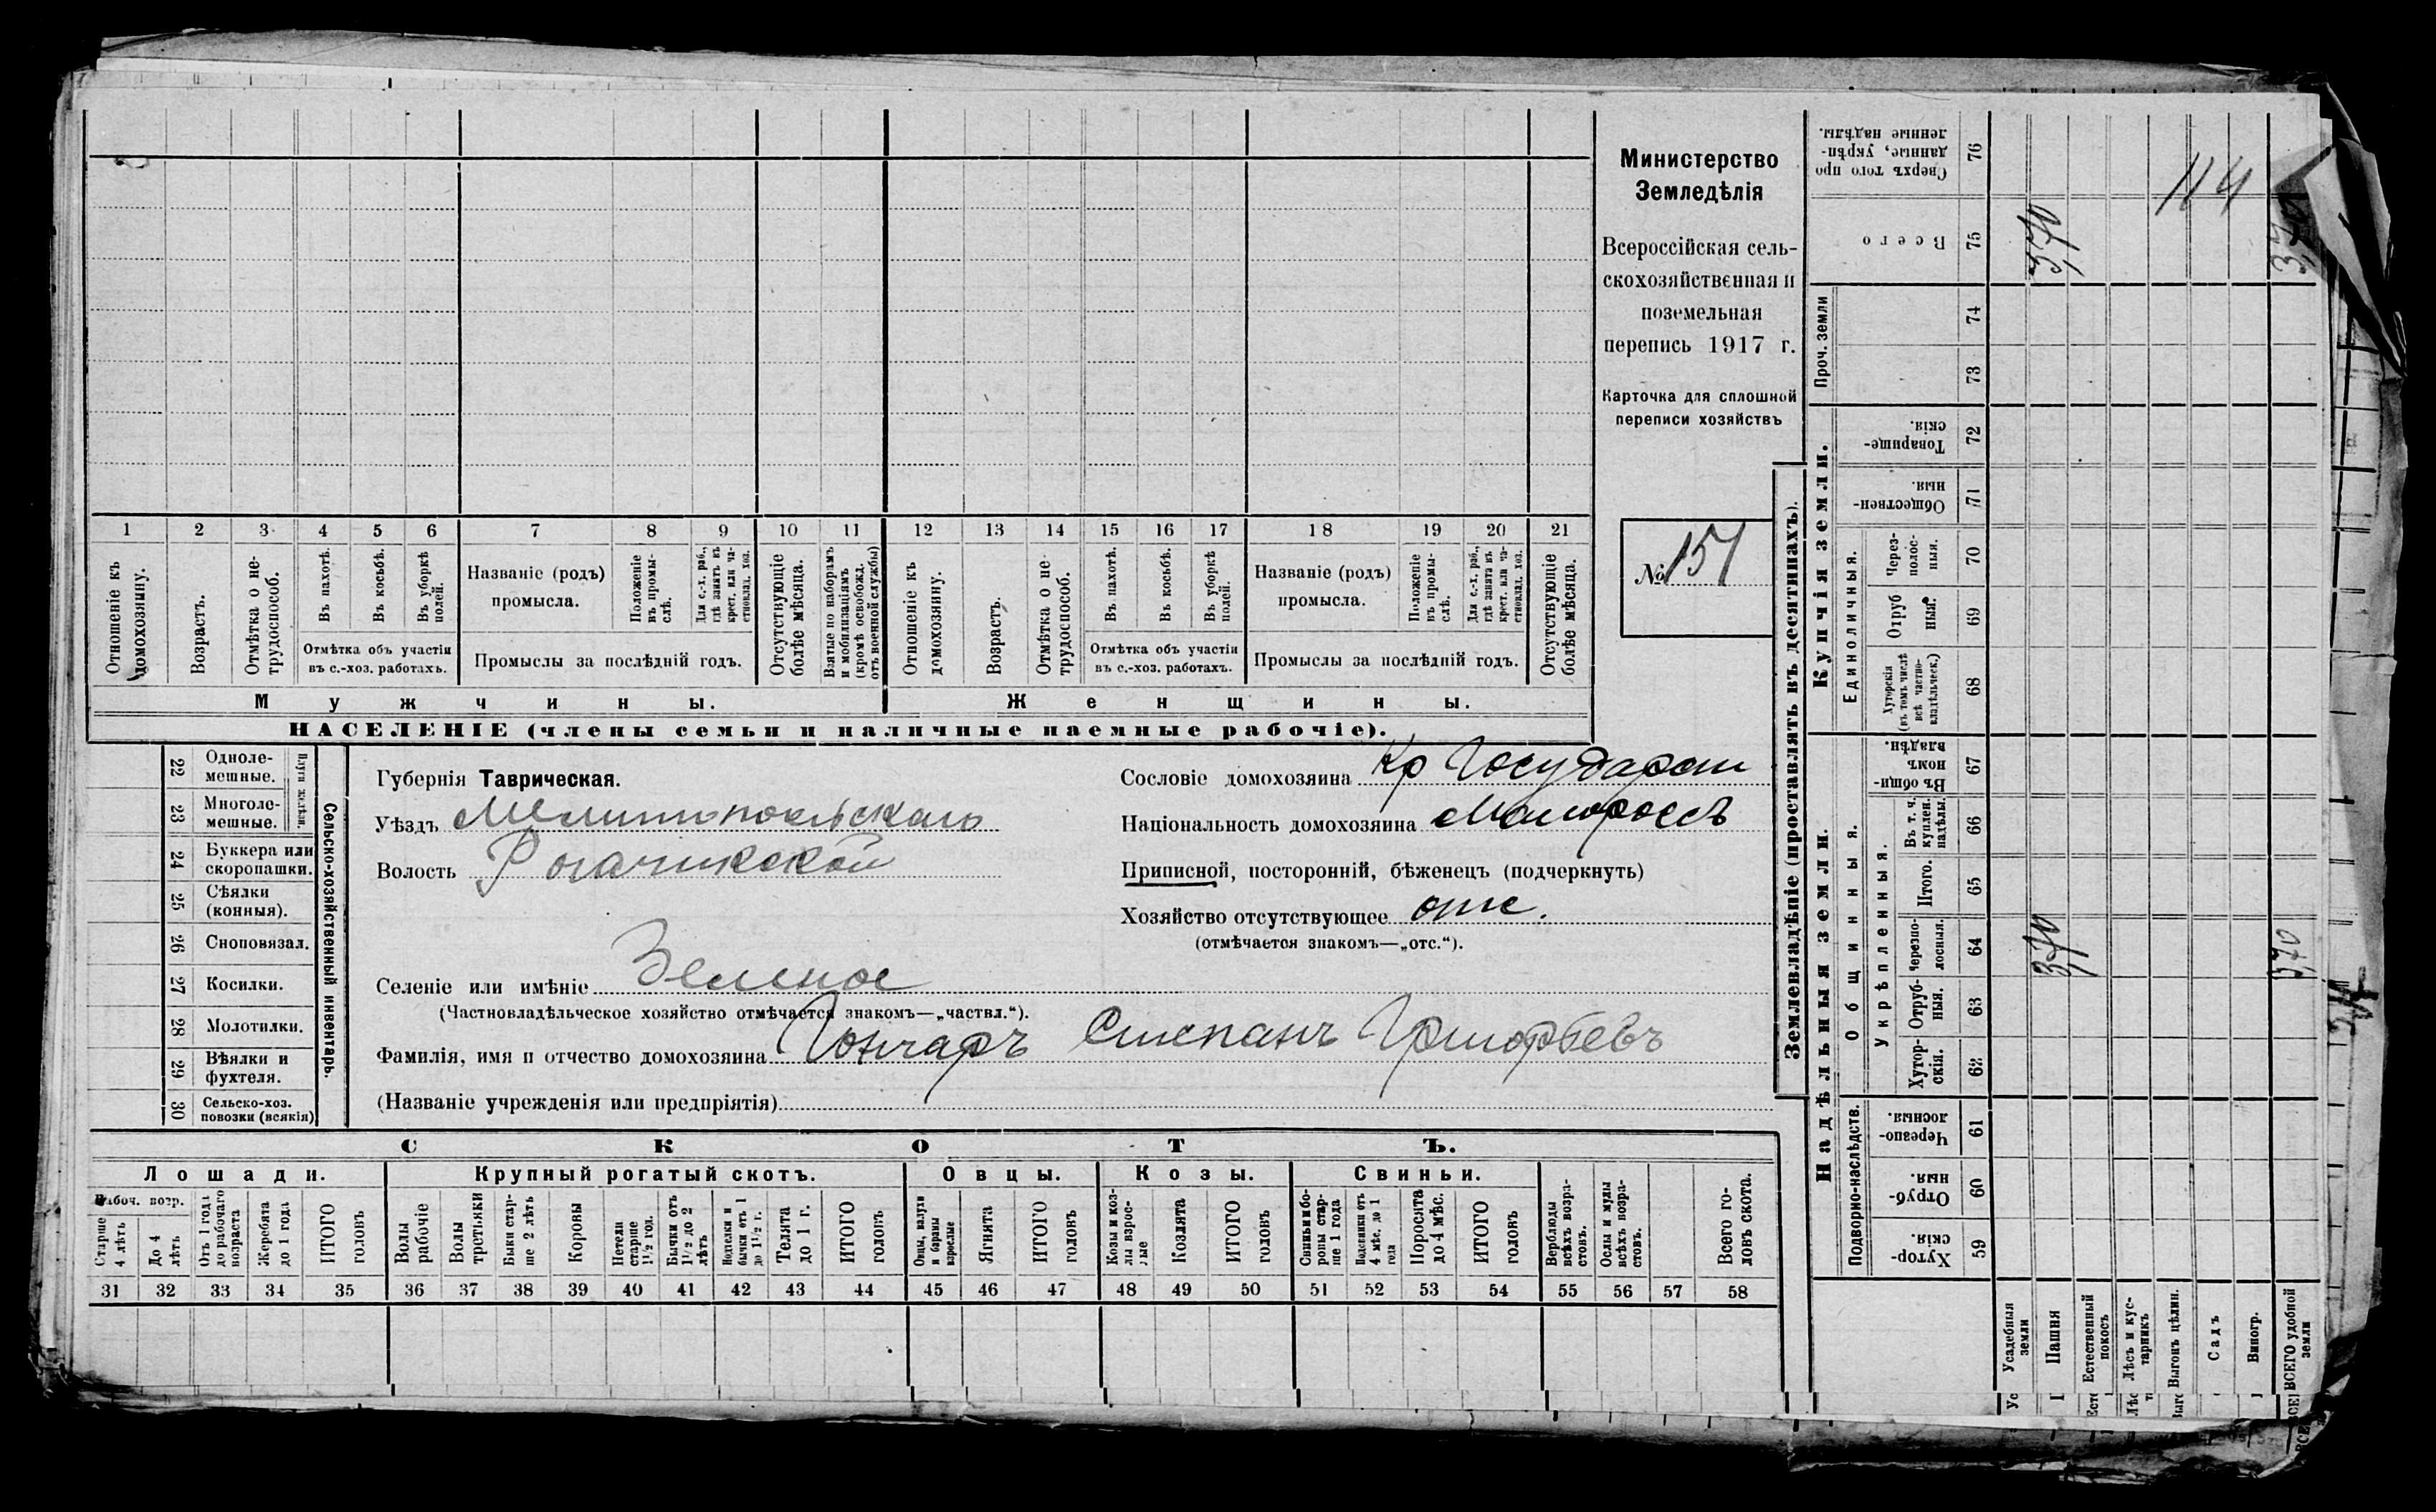 1 2 3 4 5 6 7 8 9 10 11 12 13 14 15 16 17 18 19 20 21
Отношеніе къ домохозяину.
Возрастъ.
Отмѣтка о не-
трудоспособ.
Въ пахотѣ.
Въ косьбѣ.
Въ уборкѣ полей.
Отмѣтка объ участіи
въ с.-хоз. работахъ.
Названіе (родъ)
промысла.
Положеніе въ промы-
слѣ.
Для с.-х. раб.,
гдѣ занятъ въ
крест. или ча-
стновлад. хоз.
Промыслы за послѣдній годъ.
Отсутствующіе
болѣе мѣсяца.
Взятые по наборамъ
и мобилизаціямъ
(кромѣ освобожд.
отъ военной службы)
Отношеніе къ
домохозяину.
Возрастъ.
Отмѣтка о не-
трудоспособ.
Въ пахотѣ.
Въ косьбѣ.
Въ уборкѣ полей.
Отмѣтка объ участіи
въ с.-хоз. работахъ.
Названіе (родъ)
промысла.
Положеніе въ промы-
слѣ.
Для с.-х. раб.,
гдѣ занята въ
крест. или ча-
стновлад. хоз.
Промыслы за послѣдній годъ.
Отсутствующіе
болѣе мѣсяца.
Мужчины.
Женщины.
НАСЕЛЕНІЕ (члены семьи и наличные наемные рабочіе).
Министерство
Земледѣлія
Всероссійская сель-
скохозяйственная и
поземельная
перепись 1917 г.
Карточка для сплошной
переписи хозяйствъ
№ 151
Сельско-хозяйственный инвентарь.
Плуги желѣзн.
22 Одноле-
мешные.
23 Многоле-
мешные.
24 Буккера или
скоропашки.
25 Сѣялки
(конныя).
26 Сноповязал.
27 Косилки.
28 Молотилки.
29 Вѣялки и
фухтеля.
30 Сельско-хоз.
повозки (всякія)
Губернія Таврическая.
Уѣздъ Мелитопольскаго
Волость Рогачикской
Сословіе домохозяина Кр Государст
Національность домохозяина Малороссъ
Приписной, посторонній, бѣженецъ (подчеркнуть)
Хозяйство отсутствующее отс.
(отмѣчается знакомъ—„отс.“).
Селеніе или имѣніе Зеленое
(Частновладѣльческое хозяйство отмѣчается знакомъ—„частвл.“).
Фамилія, имя и отчество домохозяина Гончаръ Степанъ Григорьевъ
(Названіе учрежденія или предпріятія)
СКОТЪ.
Лошади.
Крупный рогатый скотъ.
Овцы.
Козы.
Свиньи.
Рабоч. возр.
Старше
4 лѣтъ
До 4
лѣтъ
Отъ 1 года
до рабочаго
возраста
Жеребята
до 1 года
ИТОГО
головъ
Волы
рабочіе
Волы
третьяки
Быки стар-
ше 2 лѣтъ
Коровы
Нетели
старше
1½ год.
Бычки отъ
1½ до 2
лѣтъ
Подтелки и
бычки отъ 1
до 1½ г.
Телята
до 1 г.
ИТОГО
головъ
Овцы, валухи
и бараны
взрослые
Ягнята
ИТОГО
головъ
Козы и коз-
лы взрос-
лые
Козлята
ИТОГО
головъ
Свиньи и бо-
ровы стар-
ше 1 года
Подсвинки отъ
4 мѣс. до 1
года
Поросята
до 4 мѣс.
ИТОГО
головъ
Верблюды
всѣхъ возра-
стовъ.
Ослы и мулы
всѣхъ возра-
стовъ.
Всего го-
ловъ скота.
31 32 33 34 35 36 37 38 39 40 41 42 43 44 45 46 47 48 49 50 51 52 53 54 55 56 57 58
Землевладѣніе (проставлять въ десятинахъ).
Надѣльныя земли.
Подворно-наслѣдств.
Хутор-
скія. 59
Отруб-
ныя. 60
Черезпо-
лосныя. 61
Общинныя.
Укрѣпленныя.
Хутор-
скія. 62
Отруб-
ныя. 63
Черезпо-
лосныя. 64
Итого. 65
Въ т. ч.
куплен.
надѣлы. 66
Въ общи-
номъ
владѣн. 67
Купчія земли.
Единоличныя.
Хуторскія
(въ томъ числѣ
всѣ частно-
владѣльческ.) 68
Отруб
ныя. 69
Через-
полос-
ныя. 70
Обществен-
ныя. 71
Товарище-
скія. 72
Проч. земли
73 74
Всего 75
Сверхъ того про
данные, укрѣп-
ленные надѣлы. 76
Усадебныя
земли
Пашня
370 370
Естественный
покосъ
Лѣсъ и кус-
тарникъ
Выгонъ цѣлин.
Садъ
Виногр.
ВСЕГО удобной
земли
370 370
114